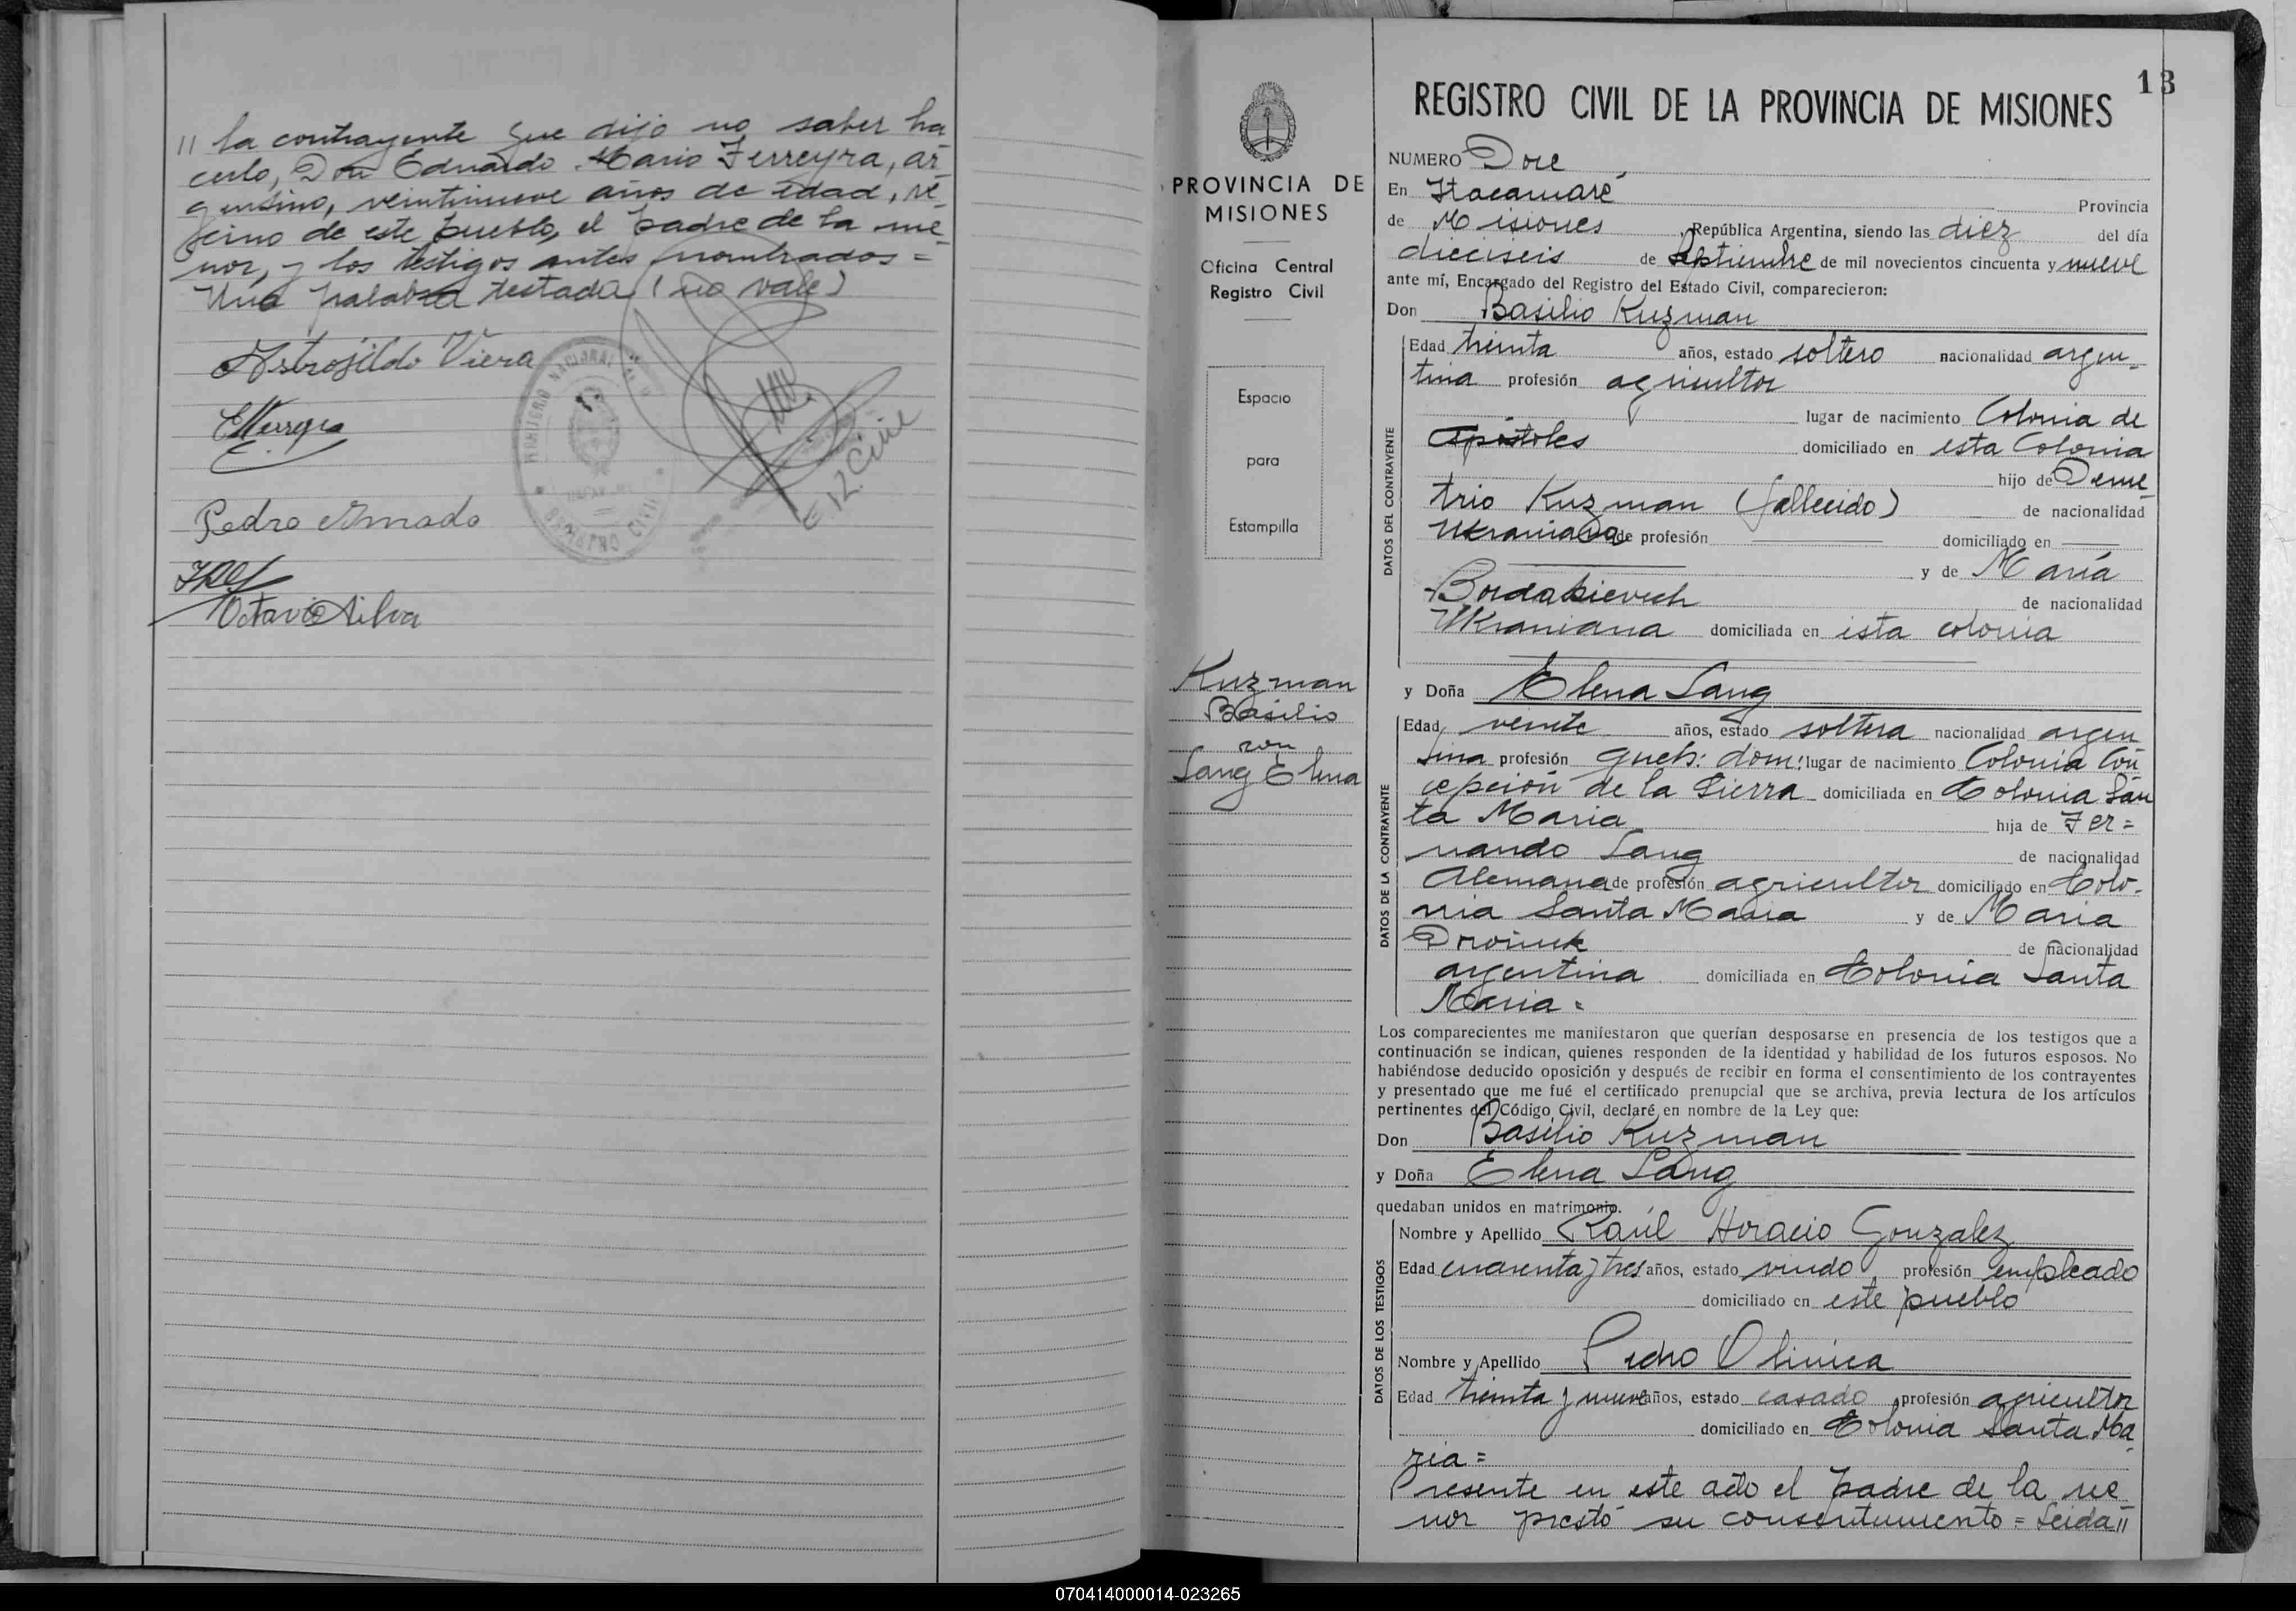 // la contrayente que dijo no saber ha
cerlo, Don Eduardo Mario Ferreyra, ar
gentino, veintinueve años de edad, ve
cino de este pueblo, el padre de la me
nor, y los testigos antes nombrados =
Una palabra testada (no vale)
Astrojildo Viera
Pedro Amado
Octavio Silva
REGISTRO CIVIL
E 12 Civil
PROVINCIA DE
MISIONES
Oficina Central
Registro Civil
Espacio
para
Estampilla
Kuzman
Basilio
con
Lang Elena
13
REGISTRO CIVIL DE LA PROVINCIA DE MISIONES
NUMERO Doce
En Itacaruaré Provincia
de Misiones, República Argentina, siendo las diez del día
dieciseis de Septiembre de mil novecientos cincuenta y nueve
ante mí, Encargado del Registro del Estado Civil, comparecieron:
Don Basilio Kuzman
DATOS DEL CONTRAYENTE
Edad treinta años, estado soltero nacionalidad argen
tina profesión agricultor
lugar de nacimiento Colonia de
Apóstoles domiciliado en esta Colonia
hijo de Deme
trio Kuzman (fallecido) de nacionalidad
Ukraniana de profesión domiciliado en
y de María
de nacionalidad
Ukraniana domiciliada en esta colonia
y Doña Elena Lang
DATOS DE LA CONTRAYENTE
Edad veinte años, estado soltera nacionalidad argen
tina profesión queh: dom: lugar de nacimiento Colonia Con
cepción de la Sierra domiciliada en Colonia San
ta Maria hija de Fer=
nando Lang de nacionalidad
Alemana de profesión agricultor domiciliado en Colo-
nia Santa Maria y de Maria
de nacionalidad
argentina domiciliada en Colonia Santa
Maria =
Los comparecientes me manifestaron que querían desposarse en presencia de los testigos que a
continuación se indican, quienes responden de la identidad y habilidad de los futuros esposos. No
habiéndose deducido oposición y después de recibir en forma el consentimiento de los contrayentes
y presentado que me fué el certificado prenupcial que se archiva, previa lectura de los artículos
pertinentes del Código Civil, declaré en nombre de la Ley que:
Don Basilio Kuzman
y Doña Elena Lang
quedaban unidos en matrimonio.
DATOS DE LOS TESTIGOS
Nombre y Apellido Raúl Horacio Gonzalez
Edad cuarenta y tres años, estado viudo profesión empleado
domiciliado en este pueblo
Nombre y Apellido Pedro Olinica
Edad treinta y nueve años, estado casado, profesión agricultor
domiciliado en Colonia Santa Ma
ria =
Presente en este acto el padre de la me
nor prestó su consentimiento = Leida //
070414000014-023265